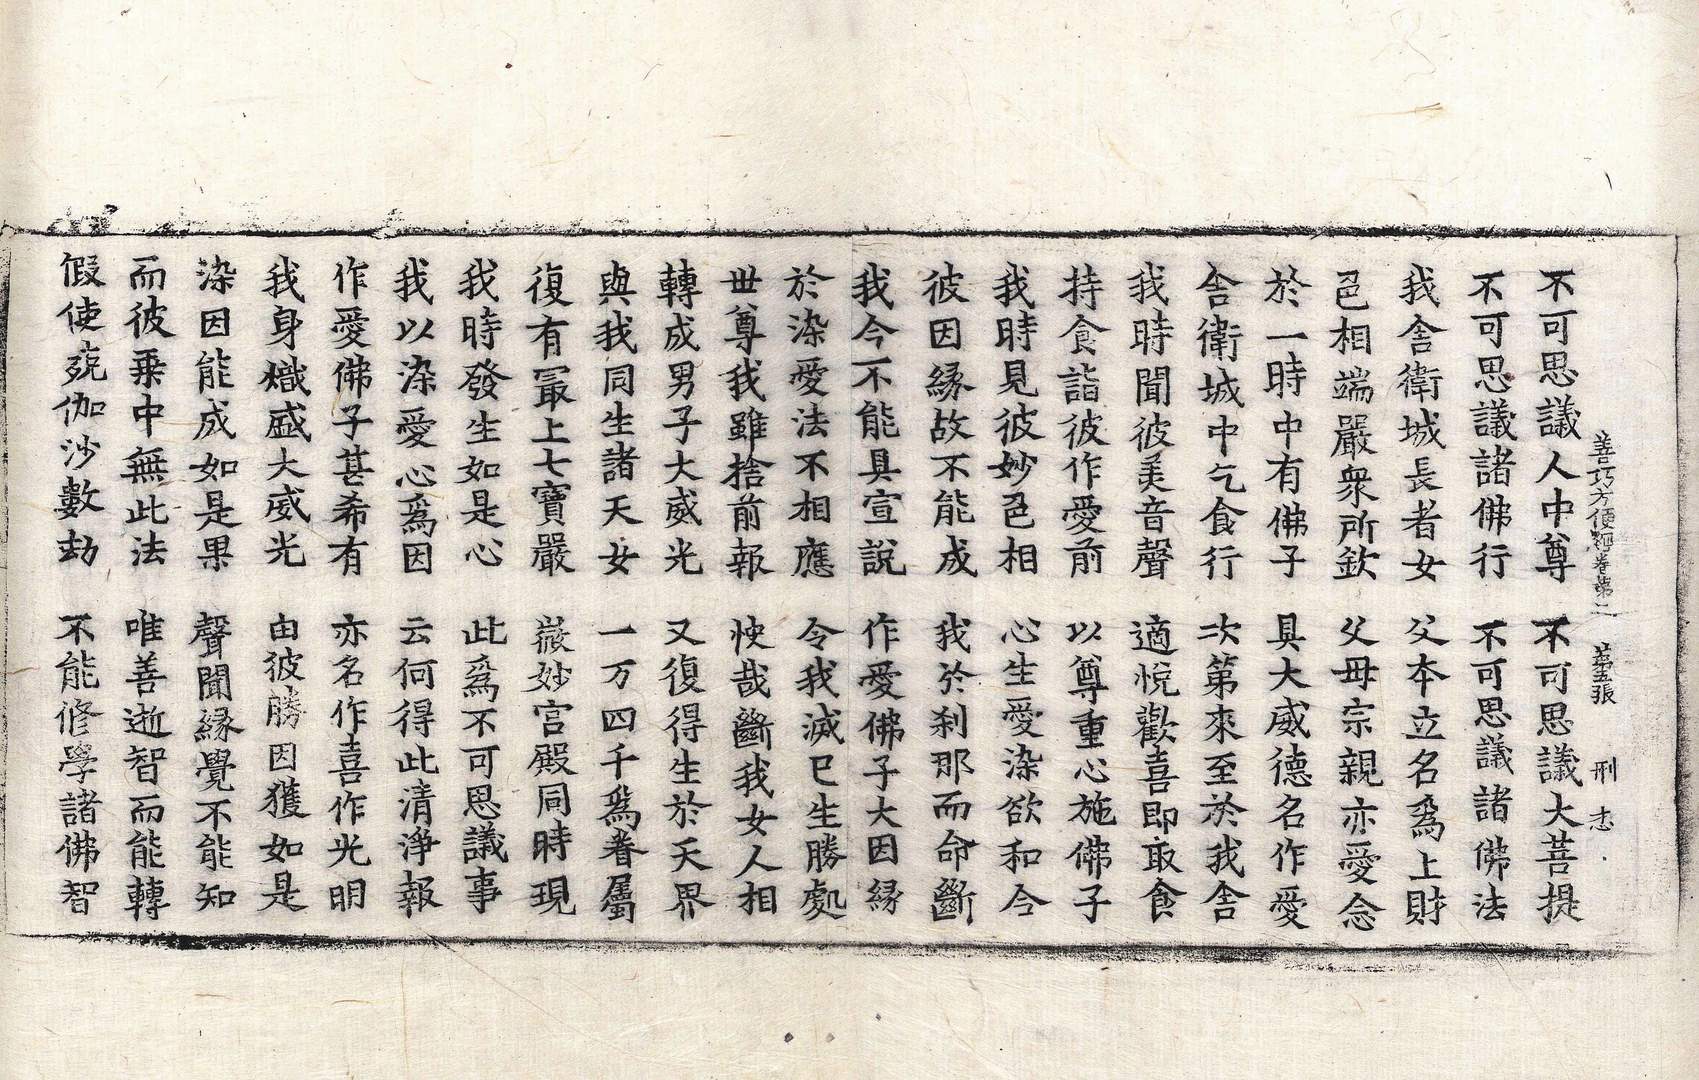 善巧方便經卷第二　第五張　刑　志
不可思議人中尊　不可思議大菩提
不可思議諸佛行　不可思議諸佛法
我舍衛城長者女　父本立名爲上財
色相端嚴衆所欽　父母宗親亦愛念
於一時中有佛子　具大威德名作愛
舍衛城中乞食行　次第來至於我舍
我時聞彼美音聲　適悅歡喜即取食
持食詣彼作愛前　以尊重心施佛子
我時見彼妙色相　心生愛染欲和合
彼因縁故不能成　我於刹那而命斷
我今不能具宣說　作愛佛子大因縁
於染愛法不相應　令我滅已生勝處
世尊我雖捨前報　快哉斷我女人相
轉成男子大威光　又復得生於天界
與我同生諸天女　一万四千爲眷屬
復有冣上七寶嚴　微妙宮殿同時現
我時發生如是心　此爲不可思議事
我以染愛心爲因　云何得此清淨報
作愛佛子甚希有　亦名作喜作光明
我身熾盛大威光　由彼勝因獲如是
染因能成如是果　聲聞縁覺不能知
而彼乗中無此法　唯善逝智而能轉
假使殑伽沙數劫　不能修學諸佛智